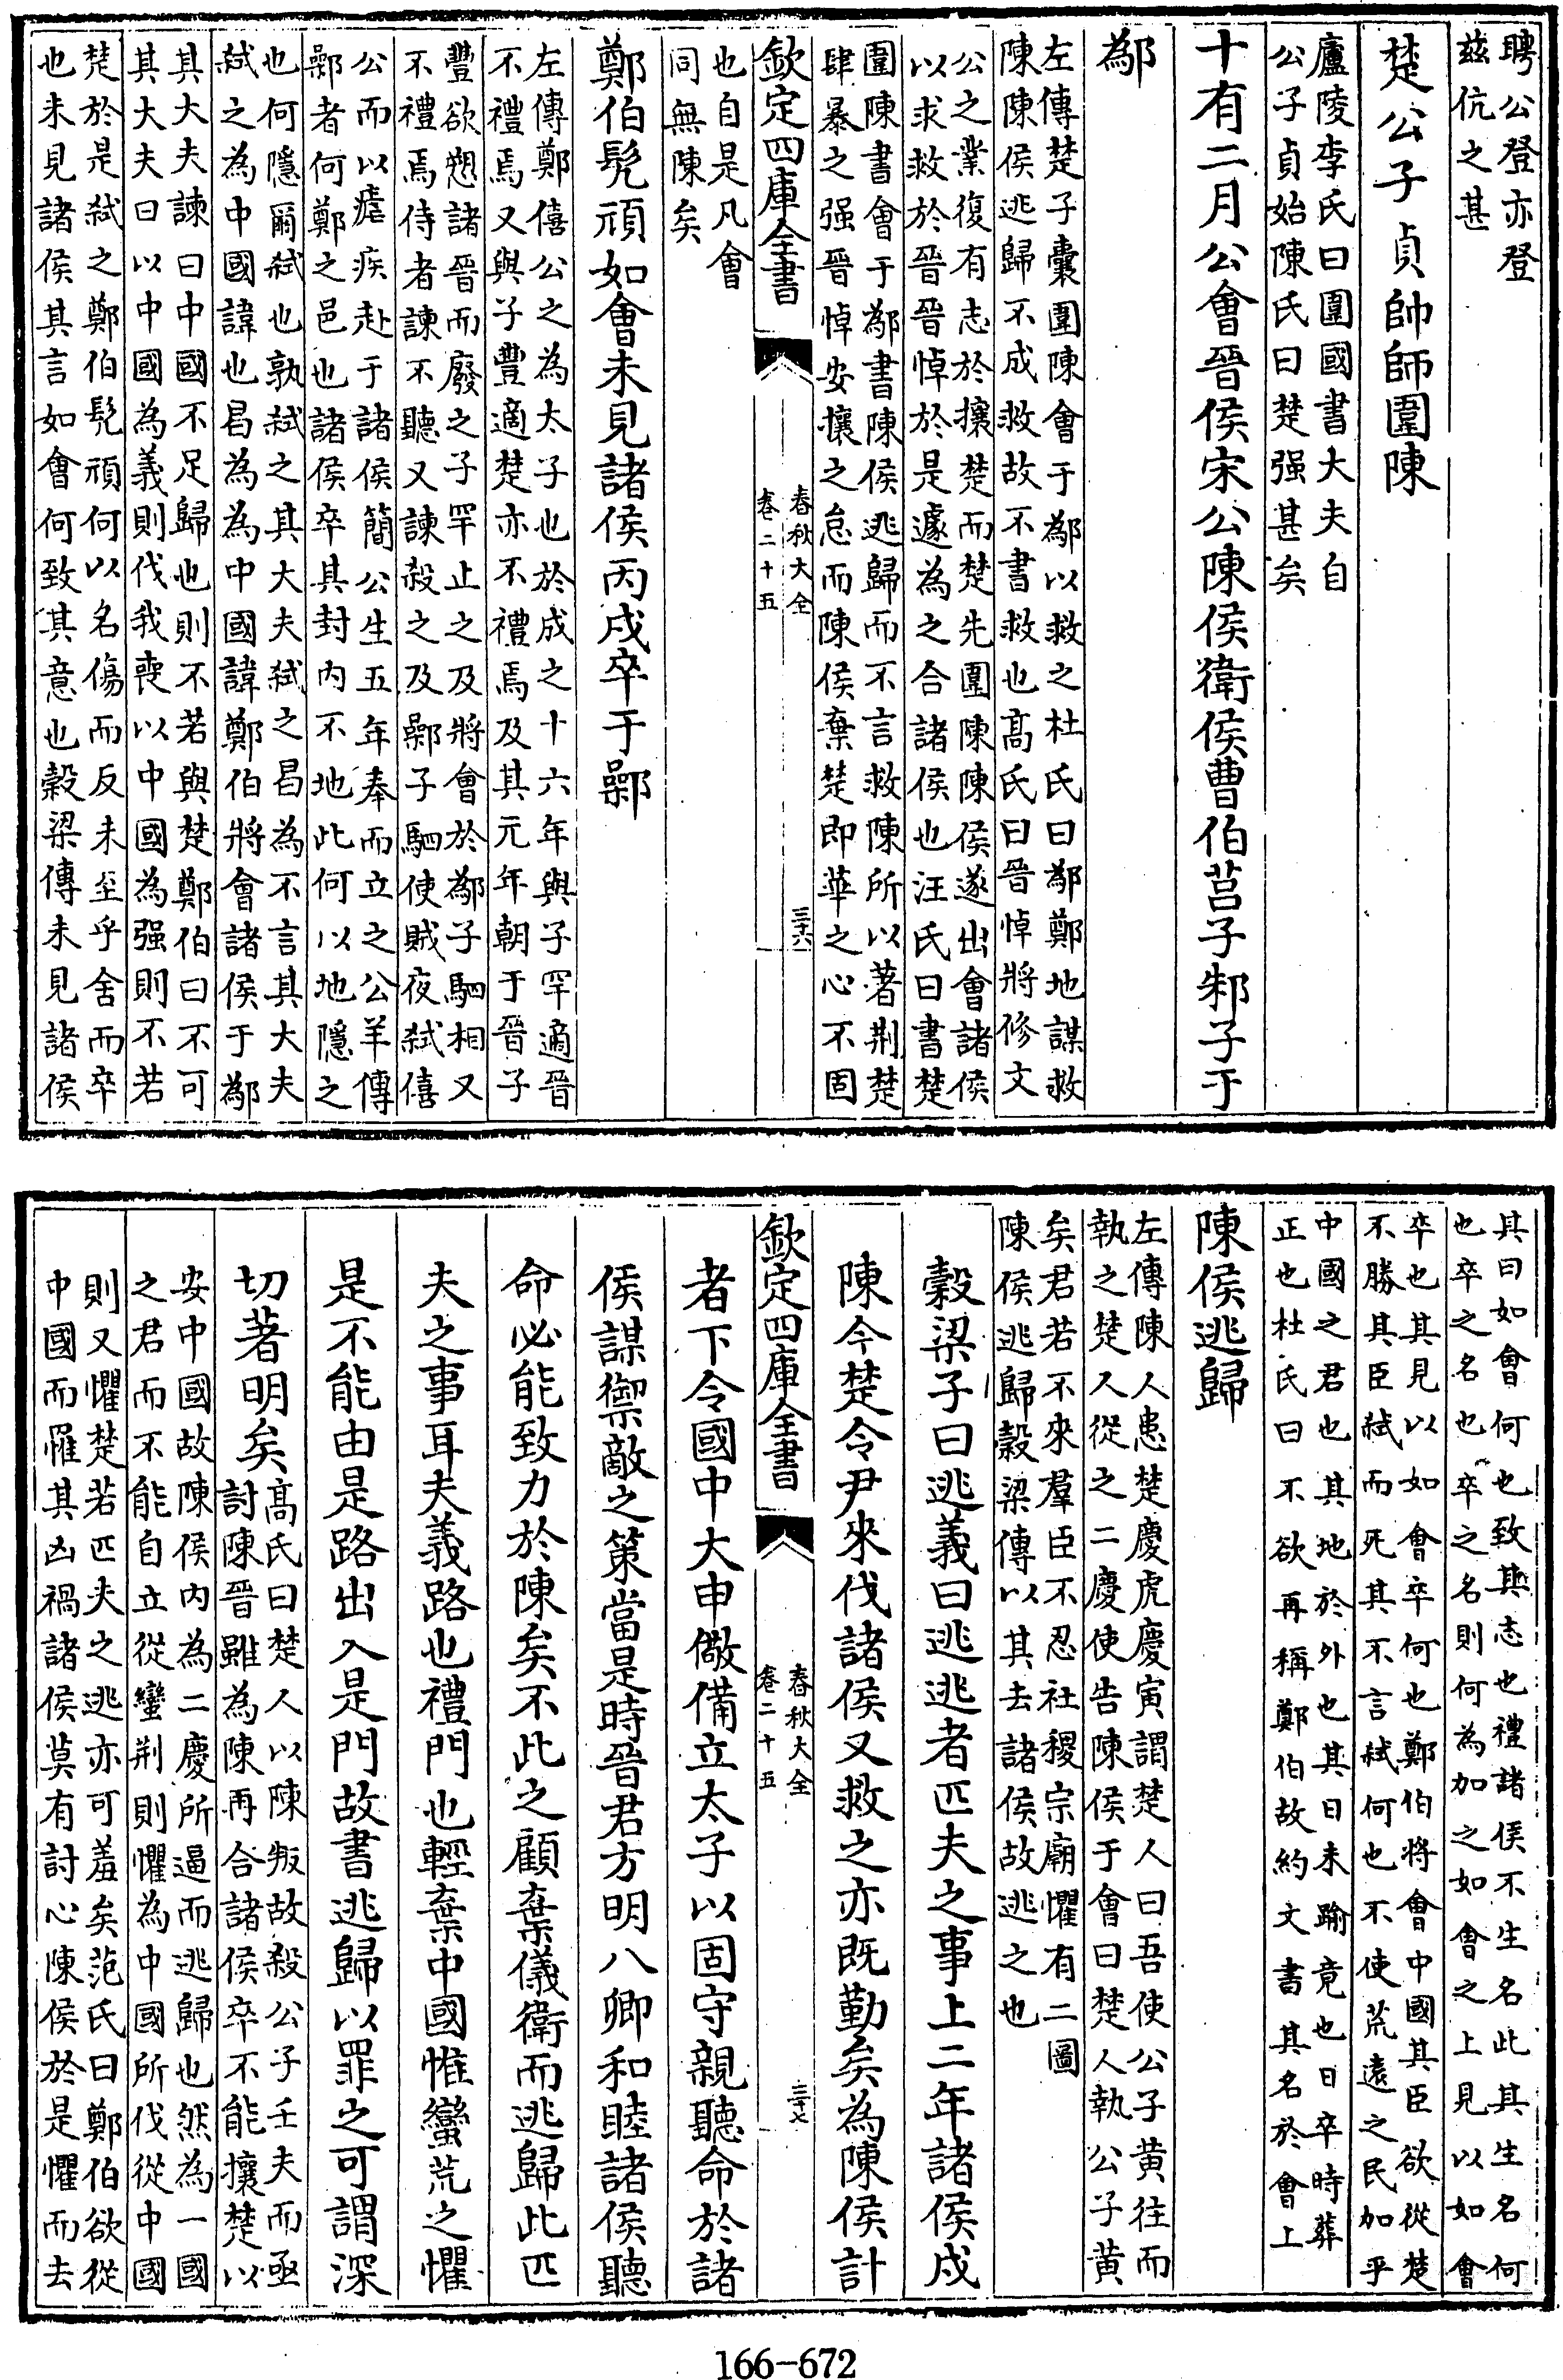 聘公登亦登
兹伉之甚
楚公子貞帥師圍陳
廬陵李氏曰圍國書大夫自
公子貞始陳氏曰楚强甚矣
十有二月公會晉侯宋公陳侯衛侯曹伯莒子邾子于
鄬
左傳楚子囊圍陳會于鄬以救之杜氏曰鄬鄭地謀救
陳陳侯逃歸不成救故不書救也高氏曰晉悼將修文
公之業復有志於攘楚而楚先圍陳陳侯遂出會諸侯
以求救於晉晉悼於是遽為之合諸侯也汪氏曰書楚
圍陳書會于鄬書陳侯逃歸而不言救陳所以著荆楚
肆暴之强晉悼安攘之怠而陳侯棄楚即華之心不固
欽定四庫全書
春秋大全
卷二十五
三十六
也自是凡會
同無陳矣
鄭伯髠頑如會未見諸侯丙戌卒于鄵
左傳鄭僖公之為太子也於成之十六年與子罕適晉
不禮焉又與子豐適楚亦不禮焉及其元年朝于晉子
豐欲愬諸晉而廢之子罕止之及將會於鄬子駟相又
不禮焉侍者諫不聽又諫殺之及鄵子駟使賊夜弑僖
公而以瘧疾赴于諸侯簡公生五年奉而立之公羊傳
鄵者何鄭之邑也諸侯卒其封内不地此何以地隱之
也何隱爾弑也孰弑之其大夫弑之曷為不言其大夫
弑之為中國諱也曷為為中國諱鄭伯將會諸侯于鄬
其大夫諫曰中國不足歸也則不若與楚鄭伯曰不可
其大夫曰以中國為義則伐我喪以中國為强則不若
楚於是弑之鄭伯髠頑何以名傷而反未至乎舍而卒
也未見諸侯其言如會何致其意也穀梁傳未見諸侯
其曰如會何也致其志也禮諸侯不生名此其生名何
也卒之名也卒之名則何為加之如會之上見以如會
卒也其見以如會卒何也鄭伯將會中國其臣欲從楚
不勝其臣弑而死其不言弑何也不使荒遠之民加乎
中國之君也其地於外也其日未踰竟也日卒時葬
正也杜氏曰不欲再稱鄭伯故約文書其名於會上
陳侯逃歸
左傳陳人患楚慶虎慶寅謂楚人曰吾使公子黄往而
執之楚人從之二慶使告陳侯于會曰楚人執公子黄
矣君若不來羣臣不忍社稷宗廟懼有二圖
陳侯逃歸穀梁傳以其去諸侯故逃之也
穀梁子曰逃義曰逃逃者匹夫之事上二年諸侯戍
陳今楚令尹來伐諸侯又救之亦既勤矣為陳侯計
欽定四庫全書
春秋大全
卷二十五
三十七
者下令國中大申儆備立太子以固守親聽命於諸
侯謀禦敵之策當是時晉君方明八卿和睦諸侯聽
命必能致力於陳矣不此之顧棄儀衛而逃歸此匹
夫之事耳夫義路也禮門也輕棄中國惟蠻荒之懼
是不能由是路出入是門故書逃歸以罪之可謂深
切著明矣高氏曰楚人以陳叛故殺公子壬夫而亟
討陳晉雖為陳再合諸侯卒不能攘楚以
安中國故陳侯内為二慶所逼而逃歸也然為一國
之君而不能自立從蠻荆則懼為中國所伐從中國
則又懼楚若匹夫之逃亦可羞矣范氏曰鄭伯欲從
中國而罹其凶禍諸侯莫有討心陳侯於是懼而去
166-672